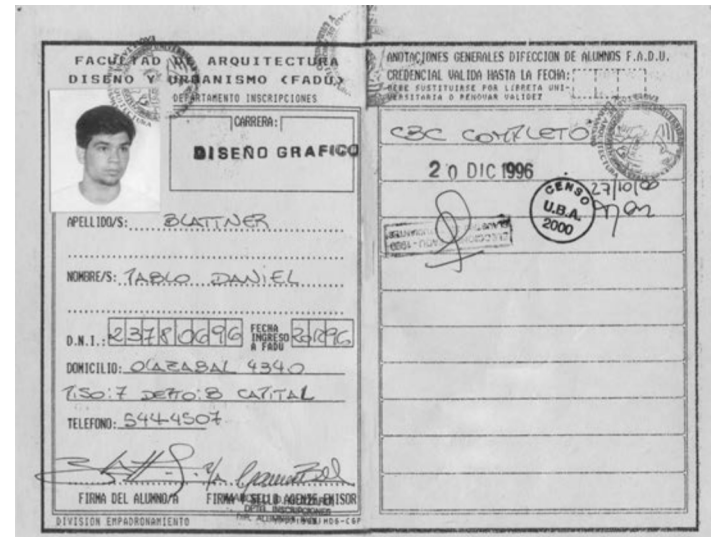 FACULTAD DE ARQUITECTURA
DISEÑO Y URBANISMO (FADU)
DEPARTAMENTO INSCRIPCIONES
CARRERA:
DISEÑO GRAFICO
APELLIDO/S: BLATTNER
NOMBRE/S: PABLO DANIEL
D.N.I.: 23780696 FECHA INGRESO A FADU 20 12 96
DOMICILIO: OLAZABAL 4340
PISO: 7 DEPTO: B CAPITAL
TELEFONO: 544-4507
FIRMA DEL ALUMNO/A FIRMA Y SELLO AGENTE EMISOR
DIVISION EMPADRONAMIENTO
ANOTACIONES GENERALES DIRECCION DE ALUMNOS F.A.D.U.
CREDENCIAL VALIDA HASTA LA FECHA:
DEBE SUSTITUIRSE POR LIBRETA UNI-
VERSITARIA O RENOVAR VALIDEZ
CBC COMPLETO
20 DIC 1996
CENSO
U.B.A.
2000
27/10/00